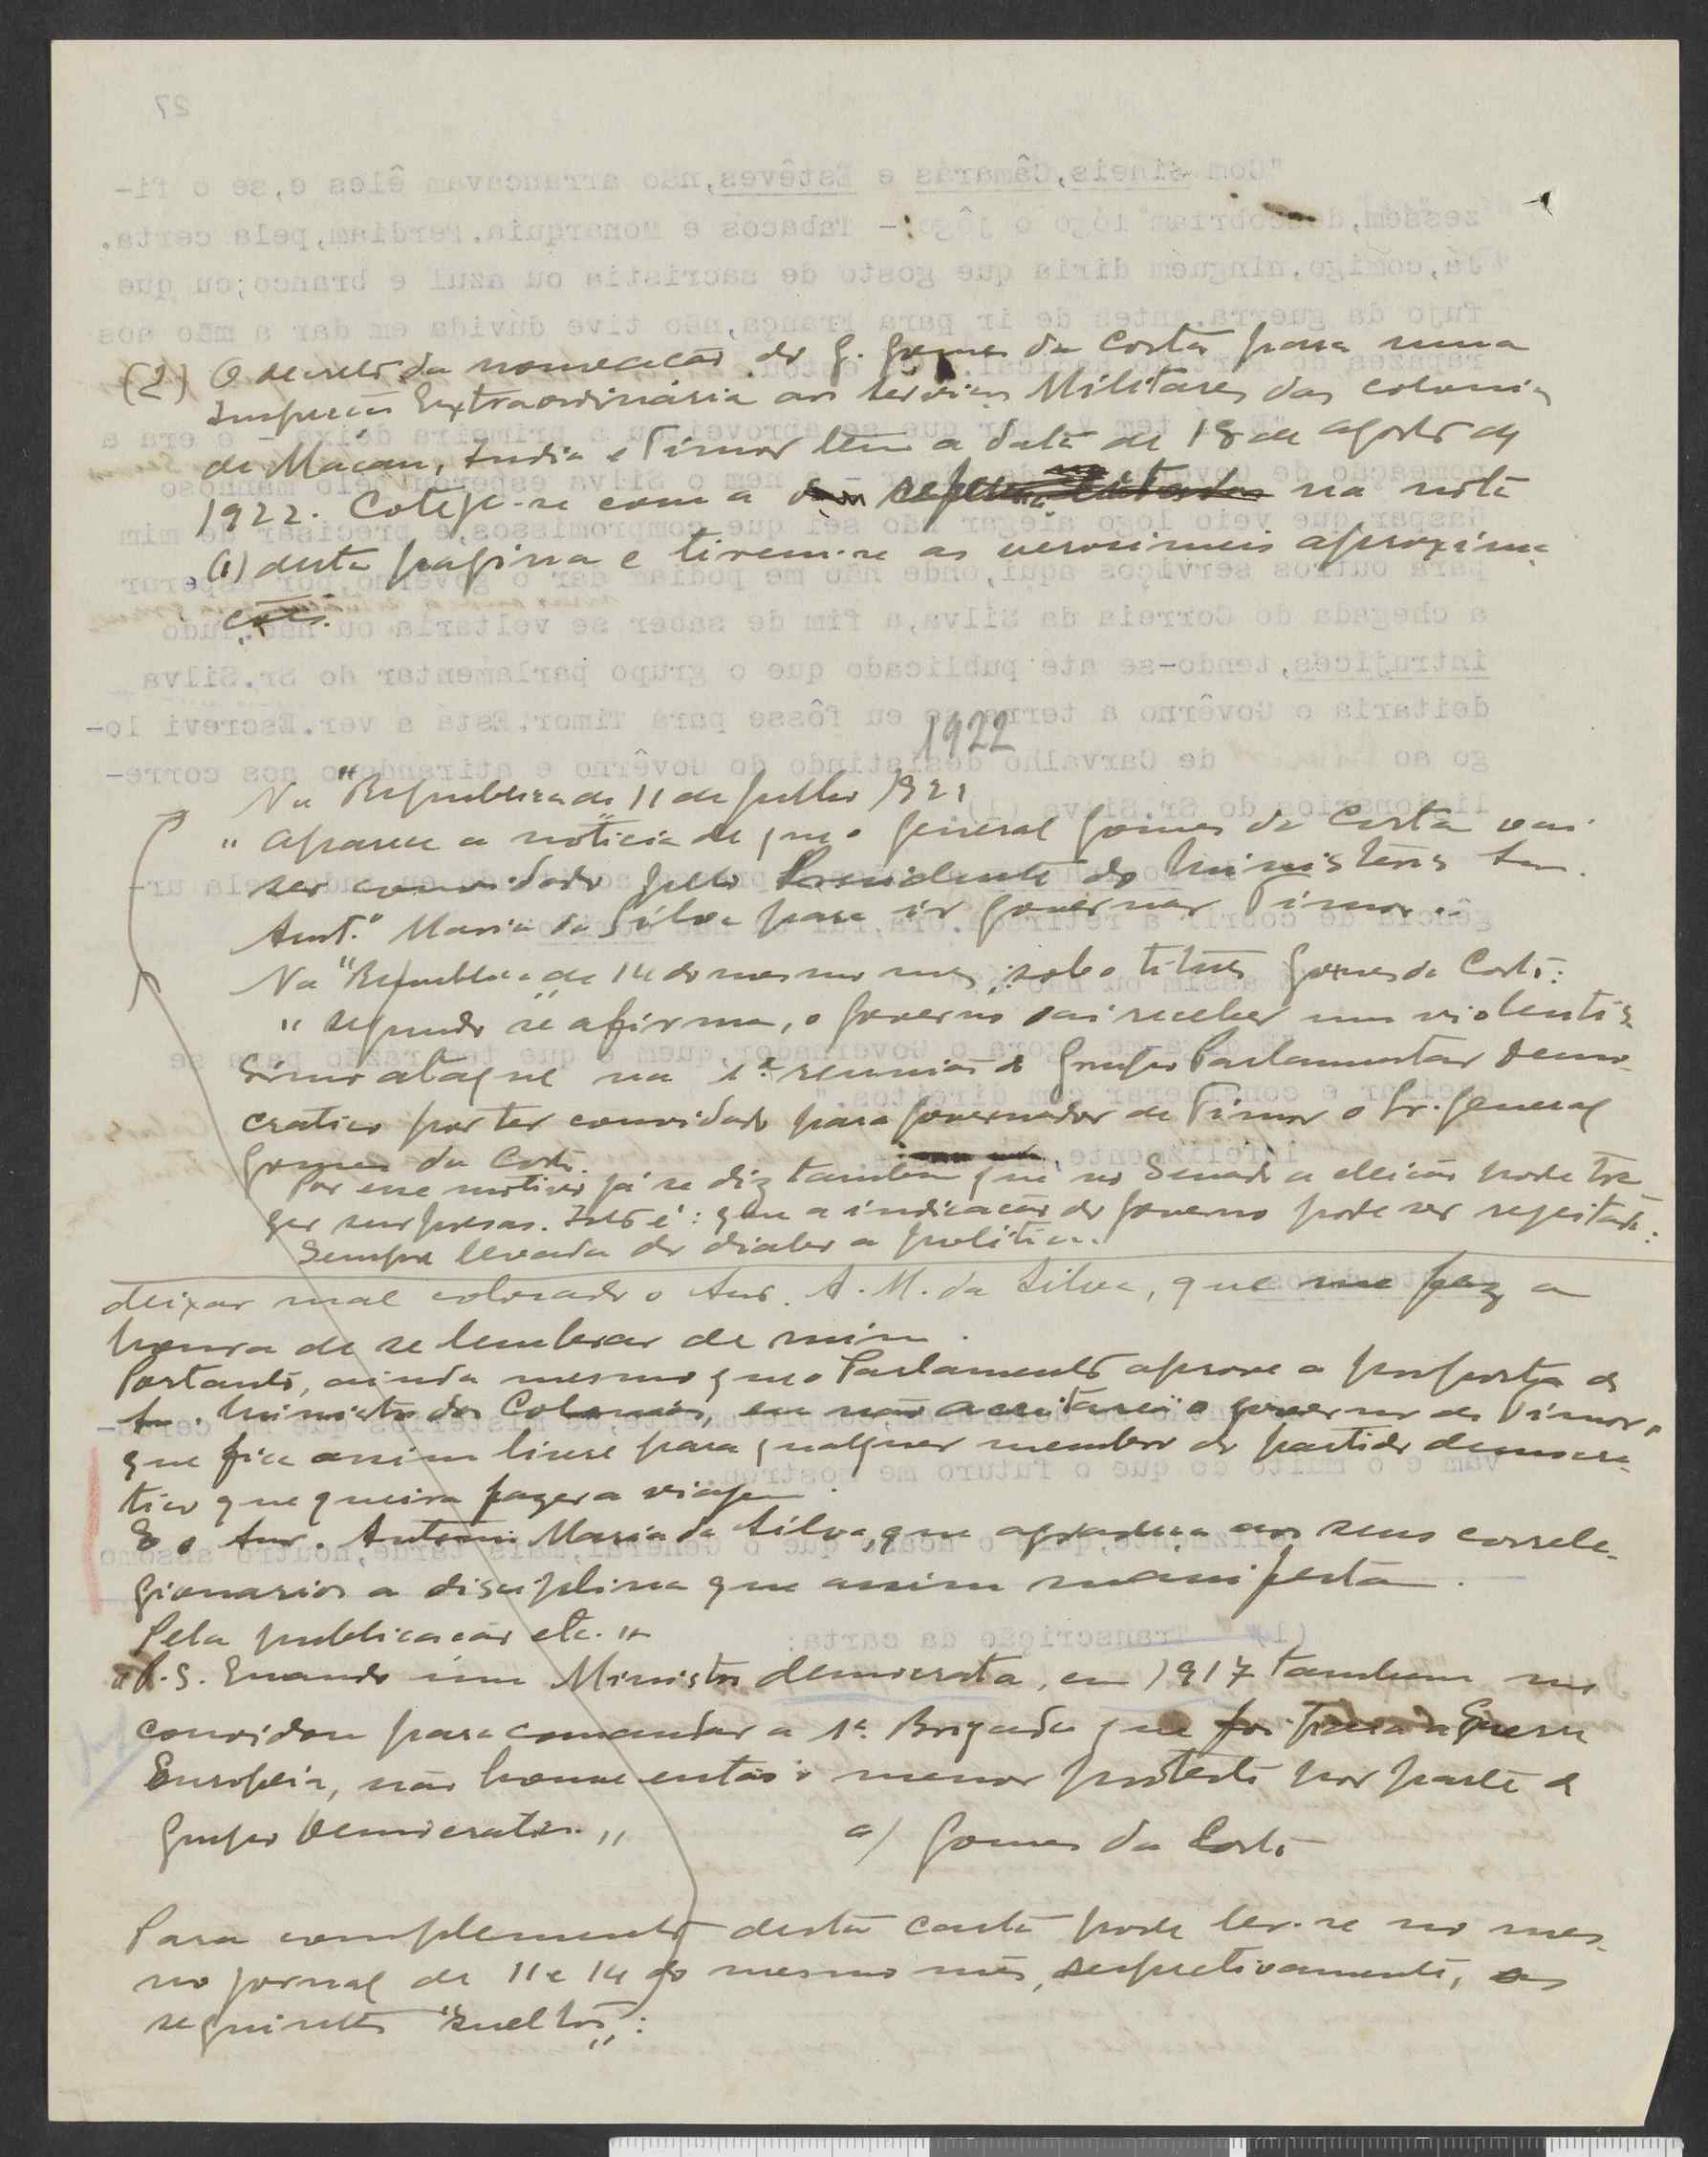 (2) O decreto da nomeação do G. Gomes da Costa para uma
Inspeção Extraordinária aos serviços Militares das colonias
de Macau, India e Timor tem a data de 18 de agosto de
1922. Coteje-se com a na nota
(1) desta pagina e tirem-se as verosimeis aproxima-
ções.
1922
Na "Republica" de 11 de Julho 1921
" Aparece a noticia de que o general Gomes da Costa vai
ser convidado pelo Presidente do Ministério Snr.
Ant.º Maria da Silva para ir governar Timor "
Na "Republica" de 14 do mesmo mes, sob o titulo Gomes da Costa:
" segundo se afirma, o governo vai receber um violentis-
simo ataque na 1ª reunião do Grupo Parlamentar Demo-
cratico por ter convidado para governador de Timor o Sr. general
Gomes da Costa.
Por esse motivo já se diz tambem que no Senado a eleição pode tra-
zer surpresas. Isto é: que a indicação do governo pode ser rejeitada.
Sempre levada do diabo a politica.
deixar mal colocado o Snr. A. M. da Silva, que me fez a
honra de se lembrar de mim.
Portanto, ainda mesmo que o Parlamento aprove a proposta do
Snr. Ministro das Colonias, eu não aceitarei o governo de Timor,
que fica assim livre para qualquer membro do partido democra-
tico que queira fazer a viagem.
E o Snr. Antonio Maria da Silva, que agradeça aos seus correle-
gionarios a disciplina que assim manifesta.
Pela publicação etc. "
"P.S. Quando um Ministro democrata, em 1917 tambem me
convidou para comandar a 1ª Brigada que foi para a Guerra
Europeia, não houve então o menor protesto por parte do
Grupo Democratico "
a) Gomes da Costa
Para complemento desta carta pode ler-se no mes-
mo jornal de 11 e 14 do mesmo mês, respetivamente, os
seguintes "sueltos":